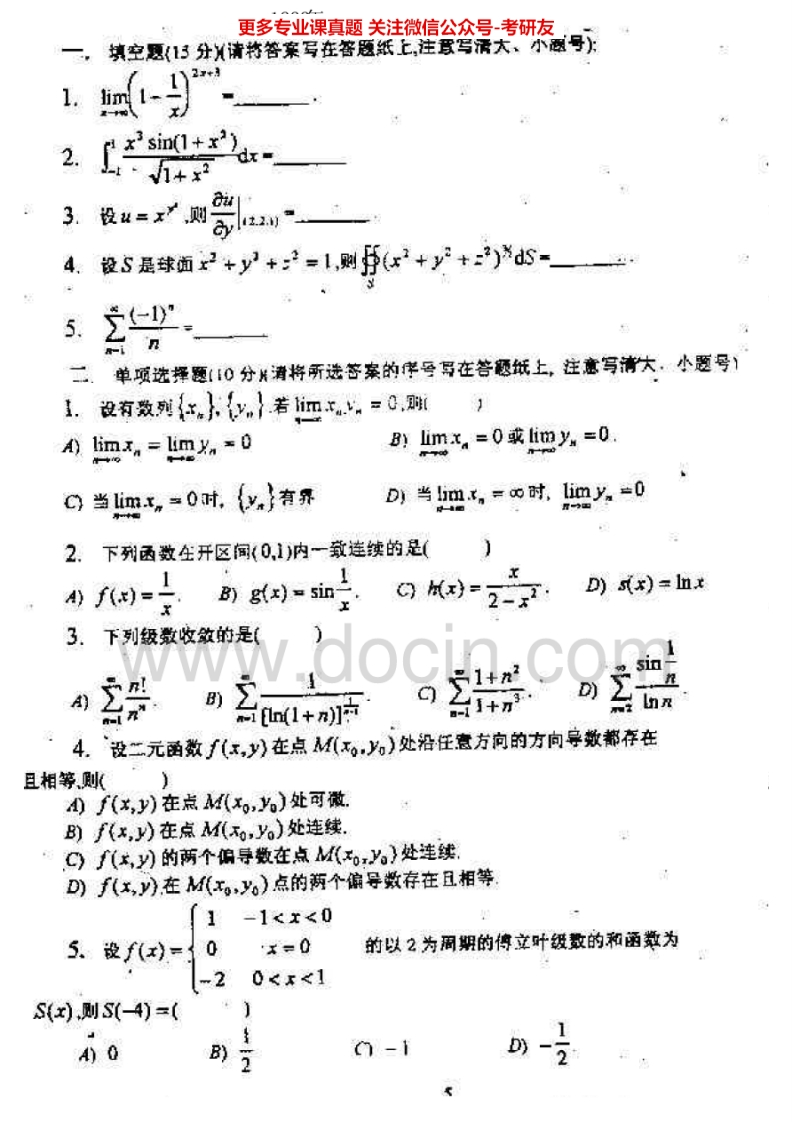 更多专业课真题 关注微信公众号-考研友
一、填空题(15 分)(请将答案写在答题纸上,注意写清大、小题号):
1. lim_{x→∞}(1-1/x)^{2x+3}=______.
2. ∫_{-1}^{1} x³sin(1+x²)/√(1+x²) dx=______
3. 设 u=x^{y^z},则 ∂u/∂y|_{(2,2,1)}=______.
4. 设 S 是球面 x²+y²+z²=1,则∯_S(x²+y²+z²)^{}dS=______.
5. ∑_{n=1}^{∞} (-1)^n/n=______
二. 单项选择题(10 分)(请将所选答案的序号写在答题纸上, 注意写清大. 小题号)
1. 设有数列{x_n},{y_n}.若 lim_{n→∞} x_n y_n=0,则( )
A) lim_{n→∞} x_n=lim_{n→∞} y_n=0 B) lim_{n→∞} x_n=0 或 lim_{n→∞} y_n=0.
C) 当 lim_{n→∞} x_n=0 时, {y_n}有界 D) 当 lim_{n→∞} x_n=∞ 时, lim_{n→∞} y_n=0
2. 下列函数在开区间(0,1)内一致连续的是( )
A) f(x)=1/x. B) g(x)=sin 1/x. C) h(x)=x/(2-x²). D) s(x)=ln x
3. 下列级数收敛的是( )
www.docin.com
A) ∑_{n=1}^{∞} n!/n^n. B) ∑_{n=1}^{∞} 1/[ln(1+n)]. C) ∑_{n=1}^{∞} (1+n²)/(1+n³). D) ∑_{n=2}^{∞} (sin 1/n)/ln n.
4. 设二元函数 f(x,y)在点 M(x₀,y₀)处沿任意方向的方向导数都存在
且相等,则( )
A) f(x,y)在点 M(x₀,y₀)处可微.
B) f(x,y)在点 M(x₀,y₀)处连续.
C) f(x,y)的两个偏导数在点 M(x₀,y₀)处连续.
D) f(x,y)在 M(x₀,y₀)点的两个偏导数存在且相等.
5. 设 f(x)={ 1 -1<x<0
0 x=0 的以 2 为周期的傅立叶级数的和函数为
-2 0<x<1
S(x),则 S(-4)=( )
A) 0 B) 1/2 C) -1 D) -1/2.
5